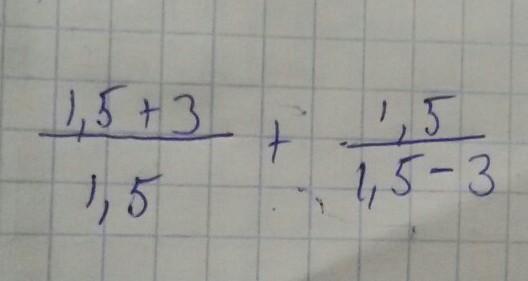 1,5 + 3 1,5
+
1,5 1,5 - 3